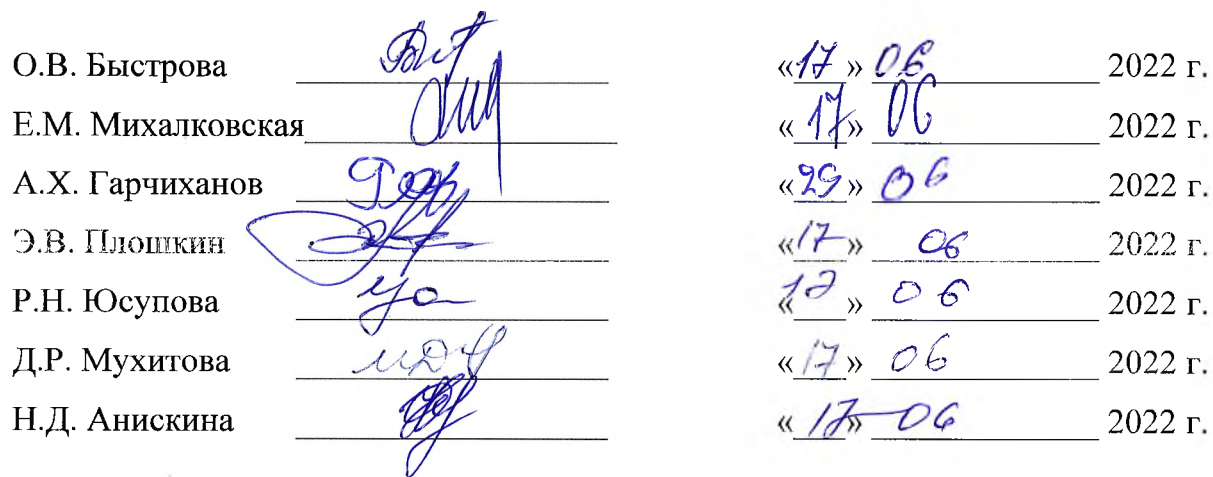 О.В. Быстрова «17» 06 2022 г.
Е.М. Михалковская «17» 06 2022 г.
А.Х. Гарчиханов «29» 06 2022 г.
Э.В. Плошкин «17» 06 2022 г.
Р.Н. Юсупова «17» 06 2022 г.
Д.Р. Мухитова «17» 06 2022 г.
Н.Д. Анискина «17» 06 2022 г.